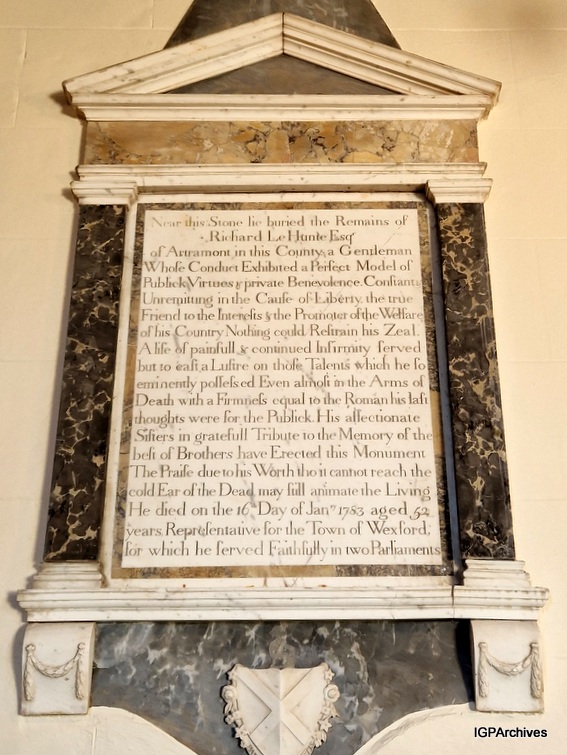 Near this Stone lie buried the Remains of
Richard Le Hunte Esqr
of Artramont in this County a Gentleman
Whoſe Conduct Exhibited a Perfect Model of
Publick Virtues & private Benevolence. Conſtant &
Unremitting in the Cauſe of Liberty, the true
Friend to the Intereſts & the Promoter of the Welfare
of his Country Nothing could Reſtrain his Zeal.
A life of painfull & continued Infirmity ſerved
but to caſt a Luſtre on thoſe Talents which he ſo
eminently poſſeſsed Even almoſt in the Arms of
Death with a Firmneſs equal to the Roman his laſt
thoughts were for the Publick. His affectionate
Siſters in gratefull Tribute to the Memory of the
beſt of Brothers have Erected this Monument
The Praiſe due to his Worth tho it cannot reach the
cold Ear of the Dead may ſtill animate the Living
He died on the 16th Day of Jany 1783 aged 52
years Repreſentative for the Town of Wexford,
for which he ſerved Faithfully in two Parliaments
IGPArchives